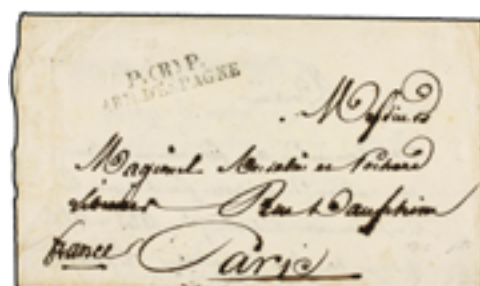 P.(B)P.
ARM.D'ESPAGNE
Messieurs
Magimel Anselin et Pochard
Libraires Rue Dauphine
france Paris